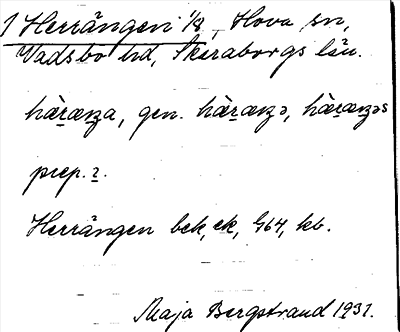 1 Herrängen 1/8, Hova sn,
Vadsbo hd, Skaraborgs län.
hàr̲æŋa, gen. hàr̲æŋə, hàr̲æŋəs
prep. ?.
Herrängen bek, ek, G64, kb.
Maja Bergstrand 1931.